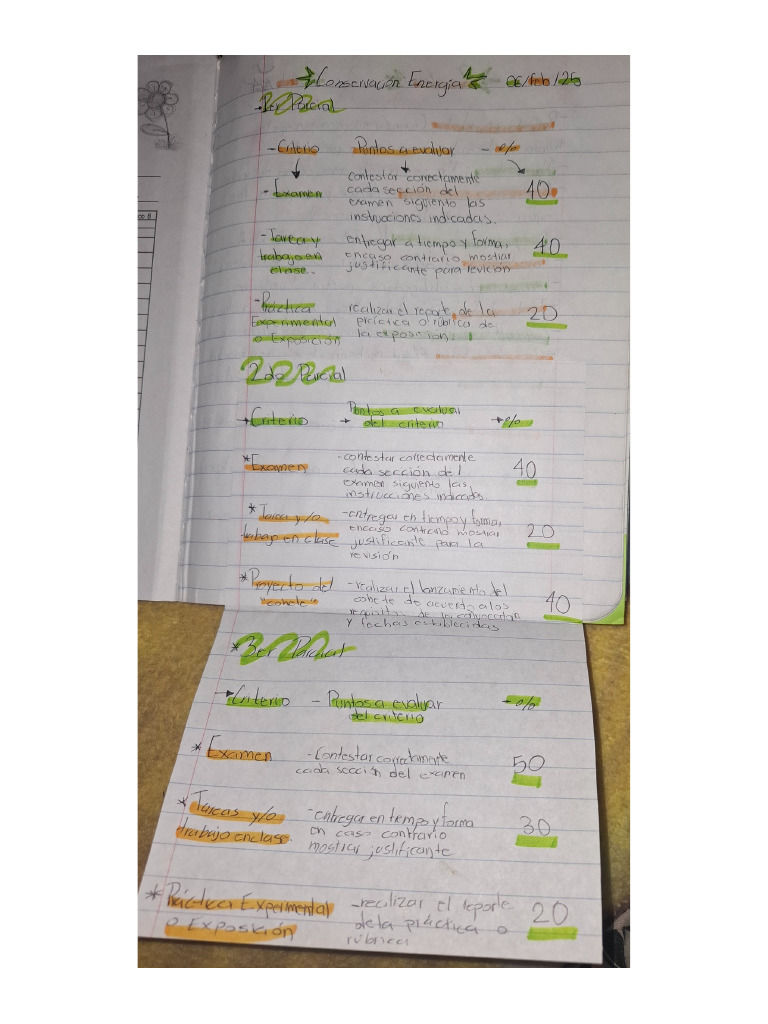 Conservación Energía 06/feb/25
1er Parcial
- Criterio Puntos a evaluar - %
- Examen contestar correctamente 40
cada sección del
examen siguiento las
instruciones indicadas.
- Tarea y entregar a tiempo y forma, 40
trabajo en encaso contrario mostrar
clase. justificante para revición
- Práctica realizar el reporte de la 20
Experimental práctica o rúbrica de
o Exposición la exposicion.
2do Parcial
Puntos a evaluar
Criterio del criterio %
* Examen - contestar correctamente 40
cada sección del
examen siguiento las
instrucciones indicadas.
* Tarea y/o - entregar en tiempo y forma, 20
trabajo en clase encaso contrario mostrar
justificante para la
revisión
* Proyecto del - realizar el lanzamiento del 40
"cohete" cohete de acuerdo a los
requisitos de la convocatoria
y fechas establecidas
* 3er Parcial
Criterio - Puntos a evaluar - %
del criterio
* Examen - Contestar correctamente 50
cada sección del examen
* Tareas y/o - entregar en tiempo y forma 30
trabajo en clase. en caso contrario
mostrar justificante
* Práctica Experimental - realizar el reporte 20
o Exposición de la práctica o
rúbrica